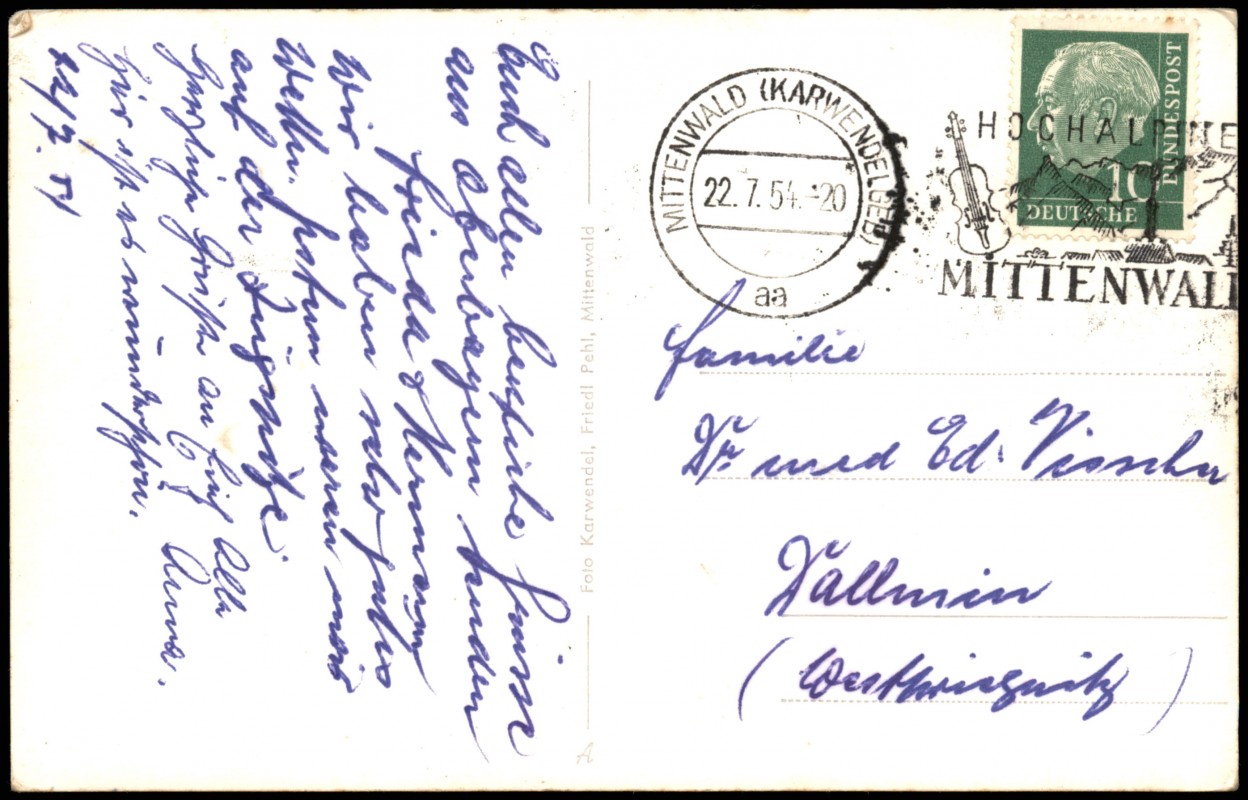 Euch allen herzliche Grüsse
aus Oberbayern senden
Frieda & Hermann
Wir haben sehr gutes
Wetter. Gestern waren wir
auf der Zugspitze.
Herzliche Grüße an Euch Alle
Hier ist es wunderschön. Anna.
22/7. 54
Foto Karwendel, Friedl Pehl, Mittenwald
A
MITTENWALD (KARWENDELGEB)
22.7.54.-20
aa
HOCHALPINE
MITTENWALD
DEUTSCHE
BUNDESPOST
10
Familie
Dr. med Ed. Visscher
Dallmin
(Westprignitz)